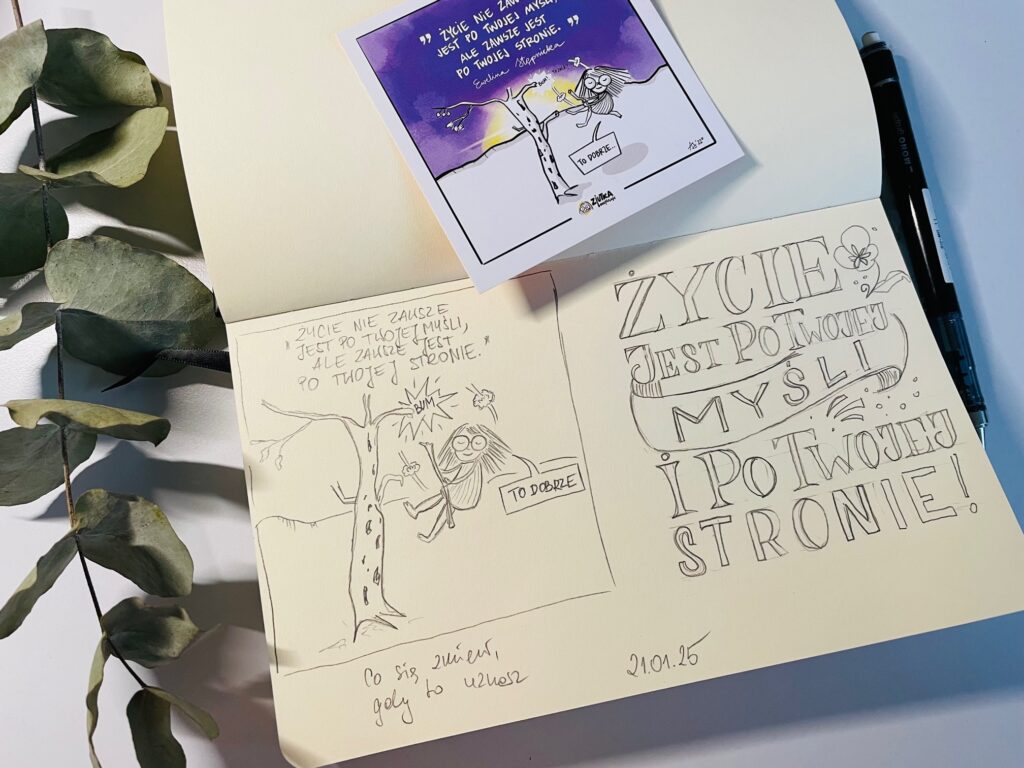 „ ŻYCIE NIE ZAW
JEST PO TWOJEJ MYŚLI,
ALE ZAWSZE JEST
PO TWOJEJ STRONIE. ”
Ewelina Stępnicka
TO DOBRZE...
MONO graph
„ ŻYCIE NIE ZAWSZE
JEST PO TWOJEJ MYŚLI,
ALE ZAWSZE JEST
PO TWOJEJ STRONIE. "
BUM
TO DOBRZE
Co się zmieni,
gdy to uznasz
ŻYCIE
JEST PO TWOJEJ
MYŚLI
I PO TWOJEJ
STRONIE!
21.01.25